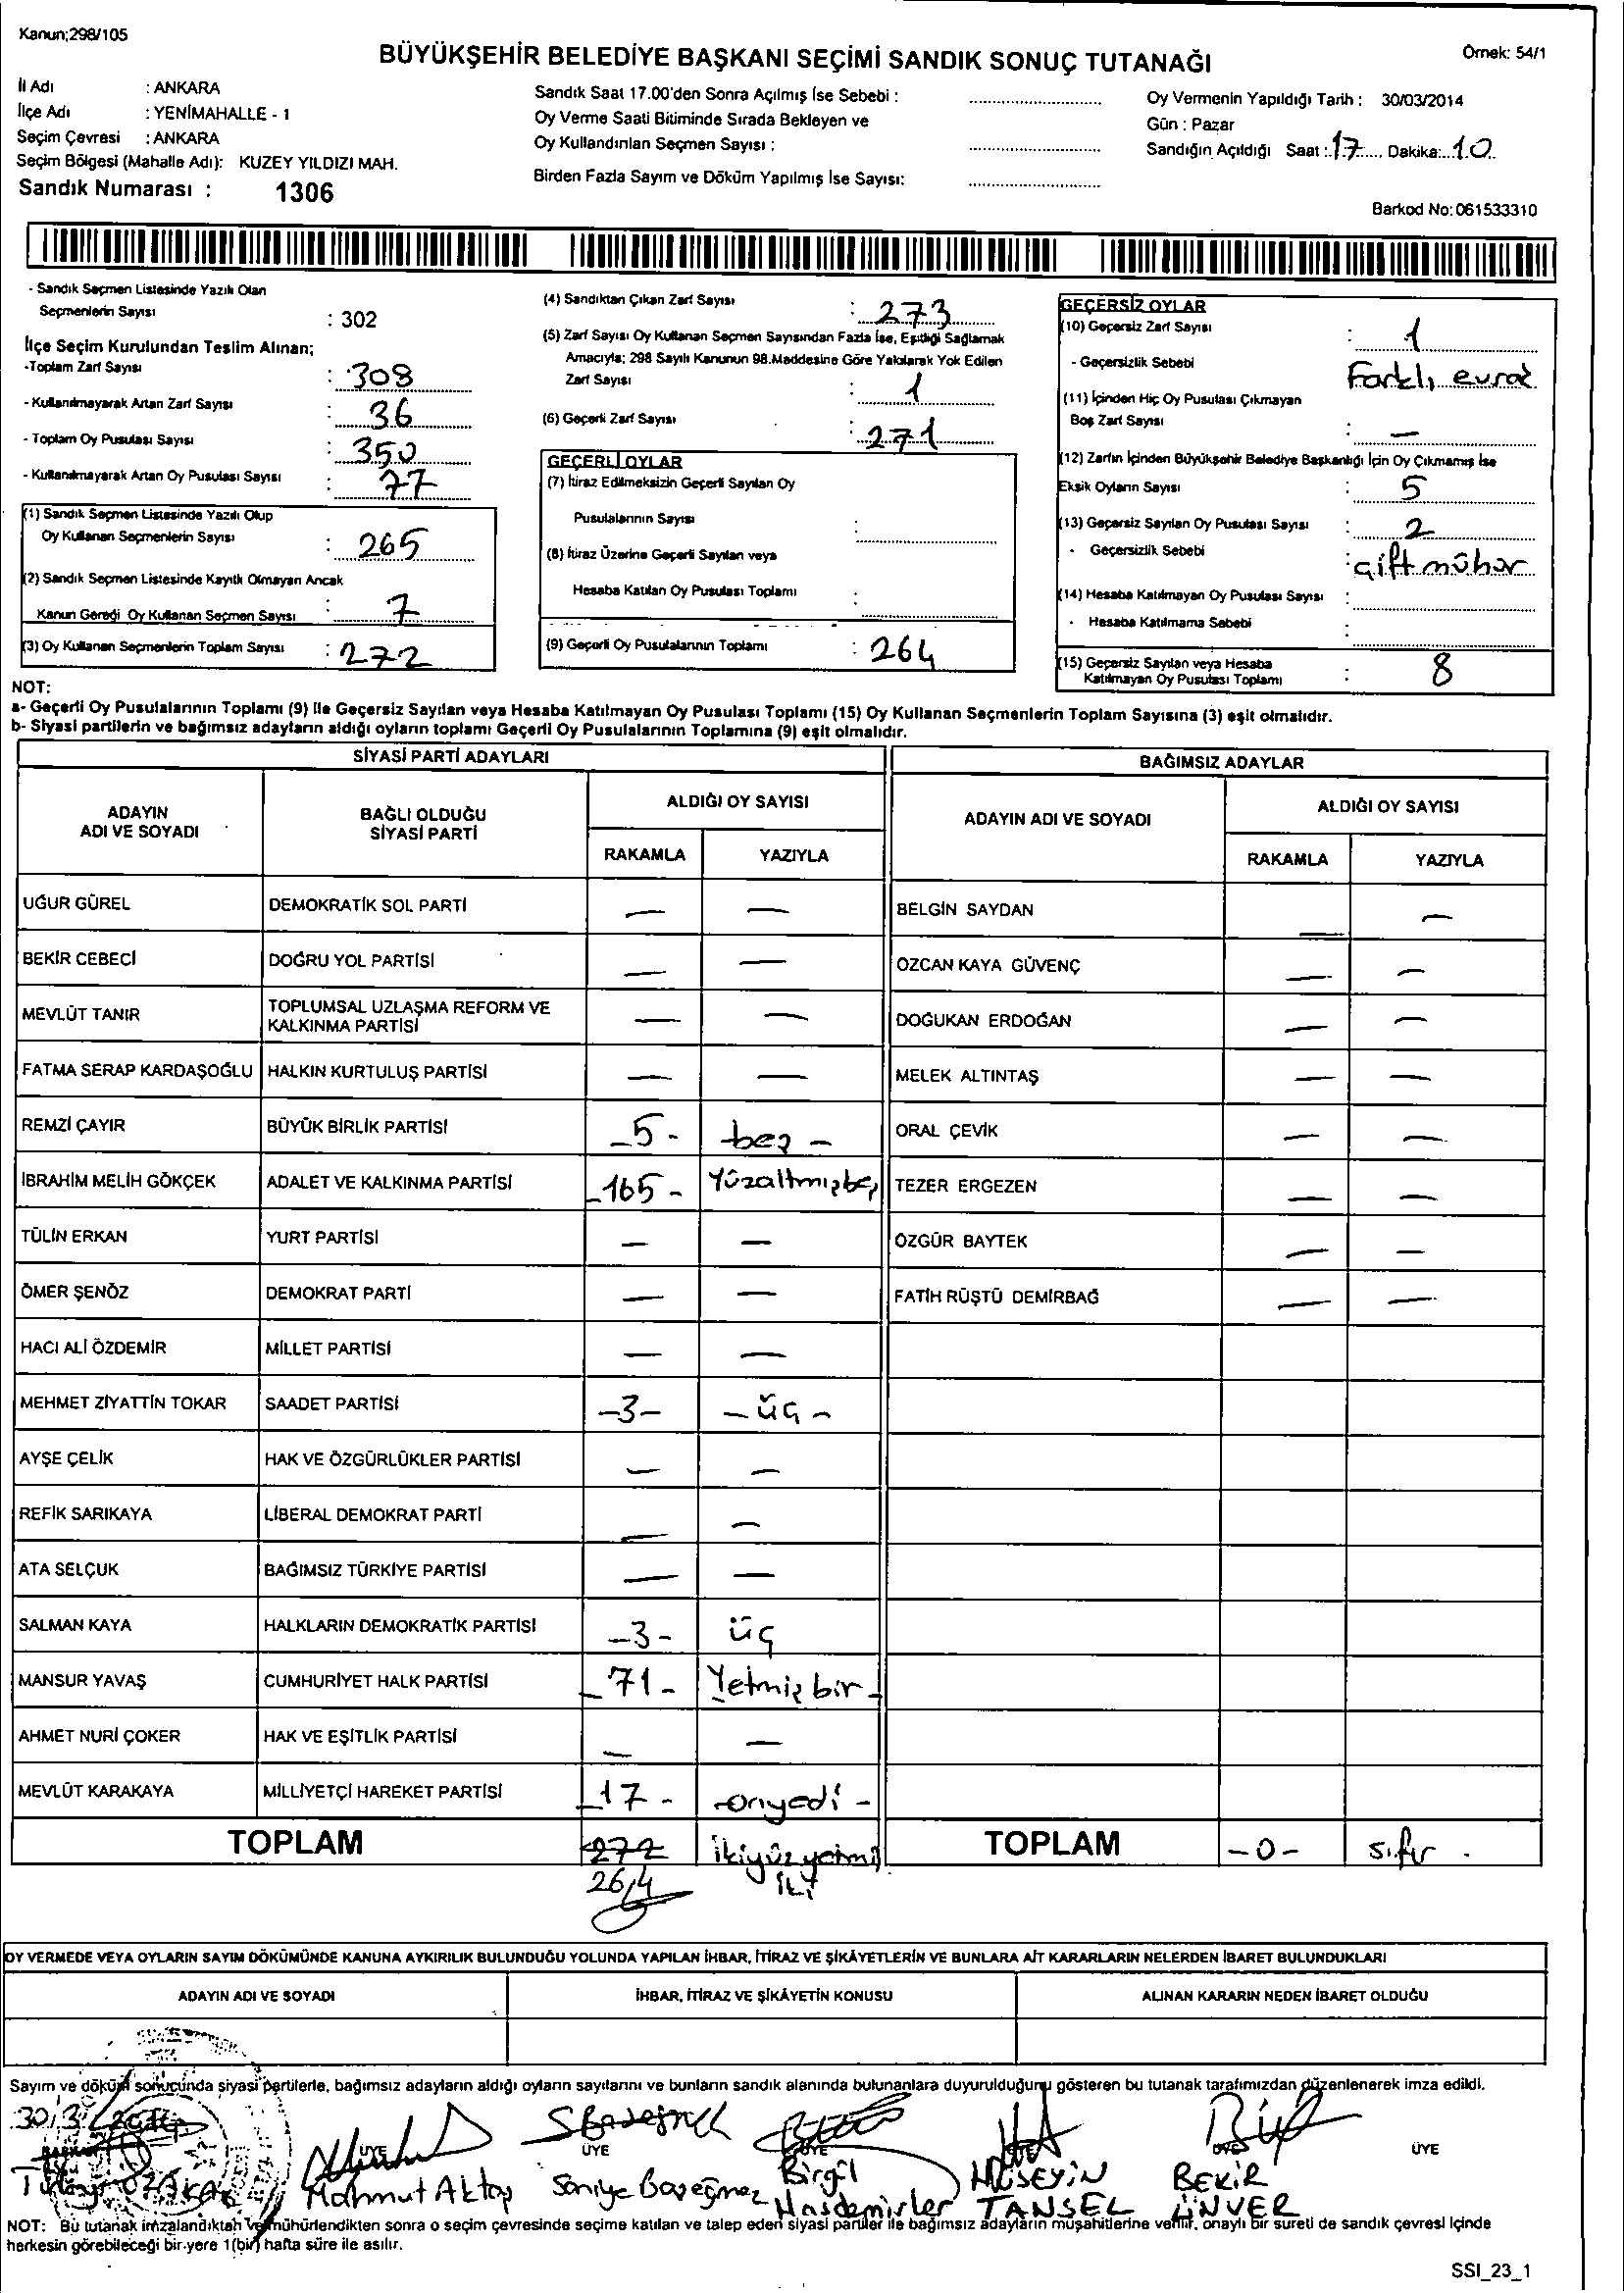 Kanun;298/105
BÜYÜKŞEHİR BELEDİYE BAŞKANI SEÇİMİ SANDIK SONUÇ TUTANAĞI
Örnek: 54/1
İl Adı : ANKARA
İlçe Adı : YENİMAHALLE - 1
Seçim Çevresi : ANKARA
Seçim Bölgesi (Mahalle Adı): KUZEY YILDIZI MAH.
Sandık Numarası : 1306
Sandık Saat 17.00'den Sonra Açılmış İse Sebebi :
Oy Verme Saati Bitiminde Sırada Bekleyen ve
Oy Kullandırılan Seçmen Sayısı :
Birden Fazla Sayım ve Döküm Yapılmış İse Sayısı:
Oy Vermenin Yapıldığı Tarih : 30/03/2014
Gün : Pazar
Sandığın Açıldığı Saat : 17 Dakika: 10
Barkod No: 061533310
- Sandık Seçmen Listesinde Yazılı Olan
Seçmenlerin Sayısı : 302
İlçe Seçim Kurulundan Teslim Alınan;
-Toplam Zarf Sayısı : 308
- Kullanılmayarak Artan Zarf Sayısı : 36
- Toplam Oy Pusulası Sayısı : 350
- Kullanılmayarak Artan Oy Pusulası Sayısı : 77
(1) Sandık Seçmen Listesinde Yazılı Olup
Oy Kullanan Seçmenlerin Sayısı : 265
(2) Sandık Seçmen Listesinde Kayıtlı Olmayan Ancak
Kanun Gereği Oy Kullanan Seçmen Sayısı : 7
(3) Oy Kullanan Seçmenlerin Toplam Sayısı : 272
(4) Sandıktan Çıkan Zarf Sayısı : 273
(5) Zarf Sayısı Oy Kullanan Seçmen Sayısından Fazla İse, Eşitliği Sağlamak
Amacıyla; 298 Sayılı Kanunun 98.Maddesine Göre Yakılarak Yok Edilen
Zarf Sayısı : 1
(6) Geçerli Zarf Sayısı : 271
GEÇERLİ OYLAR
(7) İtiraz Edilmeksizin Geçerli Sayılan Oy
Pusulalarının Sayısı :
(8) İtiraz Üzerine Geçerli Sayılan veya
Hesaba Katılan Oy Pusulası Toplamı :
(9) Geçerli Oy Pusulalarının Toplamı : 264
GEÇERSİZ OYLAR
(10) Geçersiz Zarf Sayısı : 1
- Geçersizlik Sebebi Farklı evrak
(11) İçinden Hiç Oy Pusulası Çıkmayan
Boş Zarf Sayısı : —
(12) Zarfın İçinden Büyükşehir Belediye Başkanlığı İçin Oy Çıkmamış İse
Eksik Oyların Sayısı : 5
(13) Geçersiz Sayılan Oy Pusulası Sayısı : 2
- Geçersizlik Sebebi : çift mühür
(14) Hesaba Katılmayan Oy Pusulası Sayısı :
- Hesaba Katılmama Sebebi :
(15) Geçersiz Sayılan veya Hesaba
Katılmayan Oy Pusulası Toplamı : 8
NOT:
a- Geçerli Oy Pusulalarının Toplamı (9) İle Geçersiz Sayılan veya Hesaba Katılmayan Oy Pusulası Toplamı (15) Oy Kullanan Seçmenlerin Toplam Sayısına (3) eşit olmalıdır.
b- Siyasi partilerin ve bağımsız adayların aldığı oyların toplamı Geçerli Oy Pusulalarının Toplamına (9) eşit olmalıdır.
SİYASİ PARTİ ADAYLARI
ADAYIN ADI VE SOYADI
BAĞLI OLDUĞU SİYASİ PARTİ
ALDIĞI OY SAYISI
RAKAMLA YAZIYLA
UĞUR GÜREL DEMOKRATİK SOL PARTİ — —
BEKİR CEBECİ DOĞRU YOL PARTİSİ — —
MEVLÜT TANIR TOPLUMSAL UZLAŞMA REFORM VE KALKINMA PARTİSİ — —
FATMA SERAP KARDAŞOĞLU HALKIN KURTULUŞ PARTİSİ — —
REMZİ ÇAYIR BÜYÜK BİRLİK PARTİSİ -5- beş -
İBRAHİM MELİH GÖKÇEK ADALET VE KALKINMA PARTİSİ -165- Yüzaltmışbeş
TÜLİN ERKAN YURT PARTİSİ — —
ÖMER ŞENÖZ DEMOKRAT PARTİ — —
HACI ALİ ÖZDEMİR MİLLET PARTİSİ — —
MEHMET ZİYATTİN TOKAR SAADET PARTİSİ -3- - üç -
AYŞE ÇELİK HAK VE ÖZGÜRLÜKLER PARTİSİ — —
REFİK SARIKAYA LİBERAL DEMOKRAT PARTİ — —
ATA SELÇUK BAĞIMSIZ TÜRKİYE PARTİSİ — —
SALMAN KAYA HALKLARIN DEMOKRATİK PARTİSİ -3- üç
MANSUR YAVAŞ CUMHURİYET HALK PARTİSİ -71- Yetmiş bir -
AHMET NURİ ÇOKER HAK VE EŞİTLİK PARTİSİ — —
MEVLÜT KARAKAYA MİLLİYETÇİ HAREKET PARTİSİ -17- -onyedi-
TOPLAM 272 ikiyüzyetmiş iki
264
BAĞIMSIZ ADAYLAR
ADAYIN ADI VE SOYADI
ALDIĞI OY SAYISI
RAKAMLA YAZIYLA
BELGİN SAYDAN — —
ÖZCAN KAYA GÜVENÇ — —
DOĞUKAN ERDOĞAN — —
MELEK ALTINTAŞ — —
ORAL ÇEVİK — —
TEZER ERGEZEN — —
ÖZGÜR BAYTEK — —
FATİH RÜŞTÜ DEMİRBAĞ — —
TOPLAM -0- sıfır
OY VERMEDE VEYA OYLARIN SAYIM DÖKÜMÜNDE KANUNA AYKIRILIK BULUNDUĞU YOLUNDA YAPILAN İHBAR, İTİRAZ VE ŞİKÂYETLERİN VE BUNLARA AİT KARARLARIN NELERDEN İBARET BULUNDUKLARI
ADAYIN ADI VE SOYADI
İHBAR, İTİRAZ VE ŞİKÂYETİN KONUSU
ALINAN KARARIN NEDEN İBARET OLDUĞU
Sayım ve döküm sonucunda siyasi partilerle, bağımsız adayların aldığı oyların sayılarını ve bunların sandık alanında bulunanlara duyurulduğunu gösteren bu tutanak tarafımızdan düzenlenerek imza edildi.
30/3/2014
BAŞKAN ÜYE ÜYE ÜYE ÜYE ÜYE ÜYE
Mahmut Aktaş
Saniye Başeğmez
Birgül Hasdemirler
HÜSEYİN TANSEL
BEKİR ÜNVER
NOT: Bu tutanak imzalandıktan ve mühürlendikten sonra o seçim çevresinde seçime katılan ve talep eden siyasi partiler ile bağımsız adayların müşahitlerine verilir, onaylı bir sureti de sandık çevresi içinde
herkesin görebileceği bir yere 1(bir) hafta süre ile asılır.
SSI_23_1